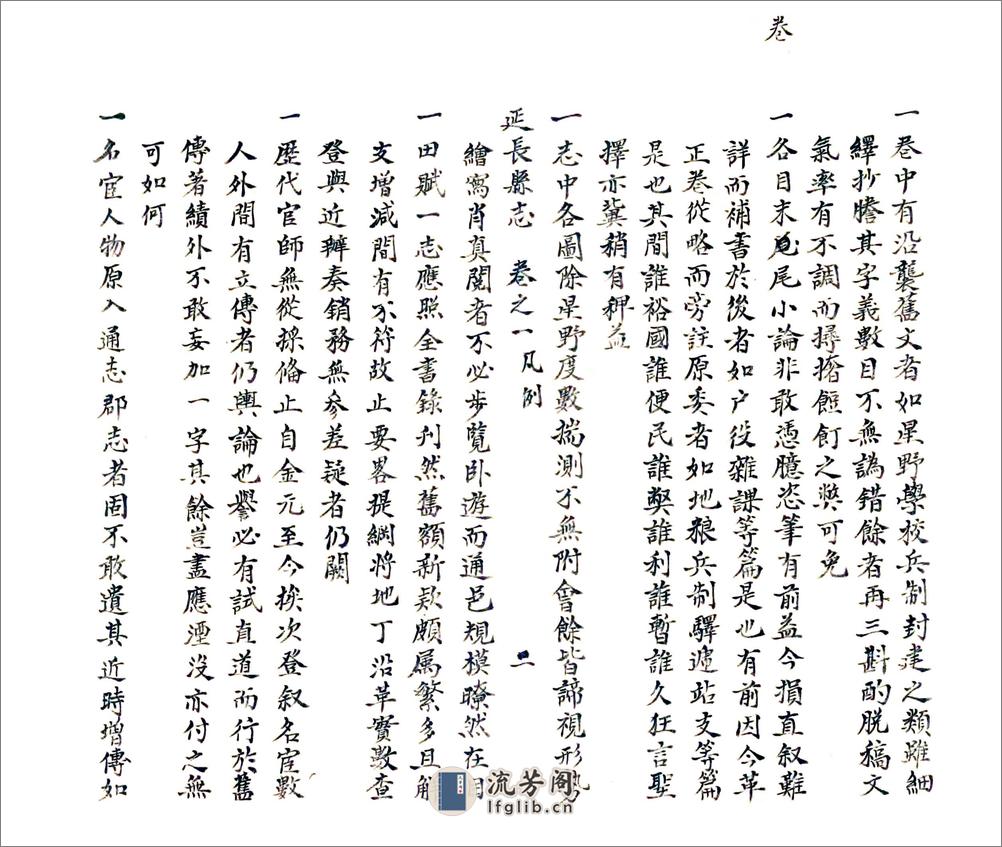 卷
一卷中有沿襲舊文者如星野學校兵制封建之類雖細
繹抄謄其字義數目不無譌錯餘者再三斟酌脫稿文
氣率有不調而撏撦餖飣之獘可免
一各目末尾小論非敢憑臆恣筆有前益今損直叙難
詳而補書於後者如户役雜課等篇是也有前因今革
正卷從略而旁註原委者如地粮兵制驛遞站支等篇
是也其間誰裕國誰便民誰獘誰利誰暫誰久狂言聖
擇亦冀稍有稗益
一志中各圖除星野度數揣測不無附會餘皆諦視形勢
延長縣志 卷之一 凡例 二
繪寫肖真閲者不必步覽卧遊而通邑規模瞭然在目
一田賦一志應照全書錄刋然舊額新欵頗属繁多且解
支增減間有不符故止要畧提綱將地丁沿革實數查
登與近辦奏銷務無參差疑者仍闕
一歷代官師無從採偹止自金元至今挨次登叙名宦數
人外間有立傳者仍輿論也譽必有試直道而行於舊
傳著績外不敢妄加一字其餘豈盡應湮沒亦付之無
可如何
一名宦人物原入通志郡志者固不敢遺其近時增傳如
流芳阁
lfglib.cn